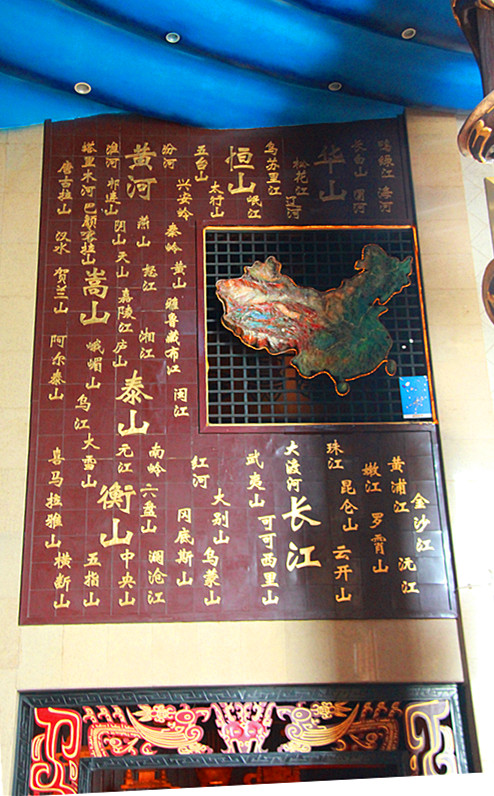 鸭绿江
淮河
长白山
图们
华山
松花江
辽河
乌苏里江
岷江
恒山
五台山
太行山
汾河
兴安岭
黄河
淮河
祁连山
塔里木河
巴颜喀拉山
唐古拉山
秦岭
黄山
雅鲁藏布江
闽江
燕山
怒江
湘江
阴山
天山
嘉陵江
庐山
泰山
嵩山
峨嵋山
乌江
汉水
贺兰山
阿尔泰山
黄浦江
金沙江
沅江
嫩江
罗霄山
珠江
昆仑山
云开山
大渡河
长江
武夷山
可可西里山
大别山
乌蒙山
红河
冈底斯山
南岭
六盘山
澜沧江
元江
衡山
中央山
大雪山
五指山
喜马拉雅山
横断山